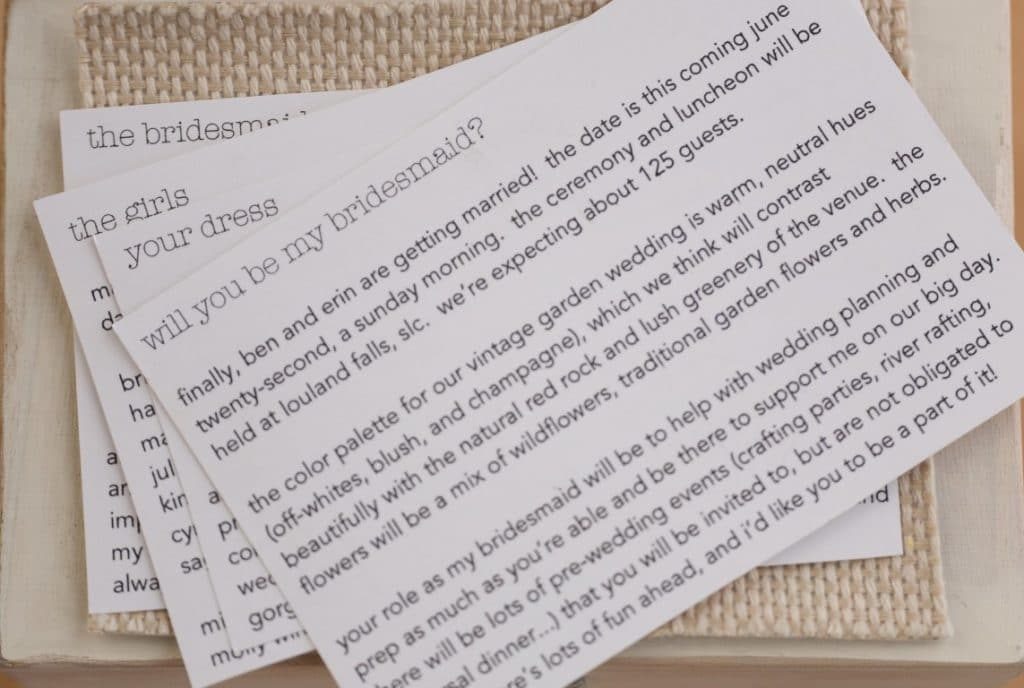 will you be my bridesmaid?
finally, ben and erin are getting married! the date is this coming june
twenty-second, a sunday morning. the ceremony and luncheon will be
held at louland falls, slc. we're expecting about 125 guests.
the color palette for our vintage garden wedding is warm, neutral hues
(off-whites, blush, and champagne), which we think will contrast
beautifully with the natural red rock and lush greenery of the venue. the
flowers will be a mix of wildflowers, traditional garden flowers and herbs.
your role as my bridesmaid will be to help with wedding planning and
prep as much as you're able and be there to support me on our big day.
here will be lots of pre-wedding events (crafting parties, river rafting,
sal dinner...) that you will be invited to, but are not obligated to
re's lots of fun ahead, and i'd like you to be a part of it!
your dress
a
pr
co
wed
gorg
the girls
m
da
br
ha
ma
jul
kin
cy
sa
mi
molly
the bridesmaid
a
an
imp
my
alwa
nd